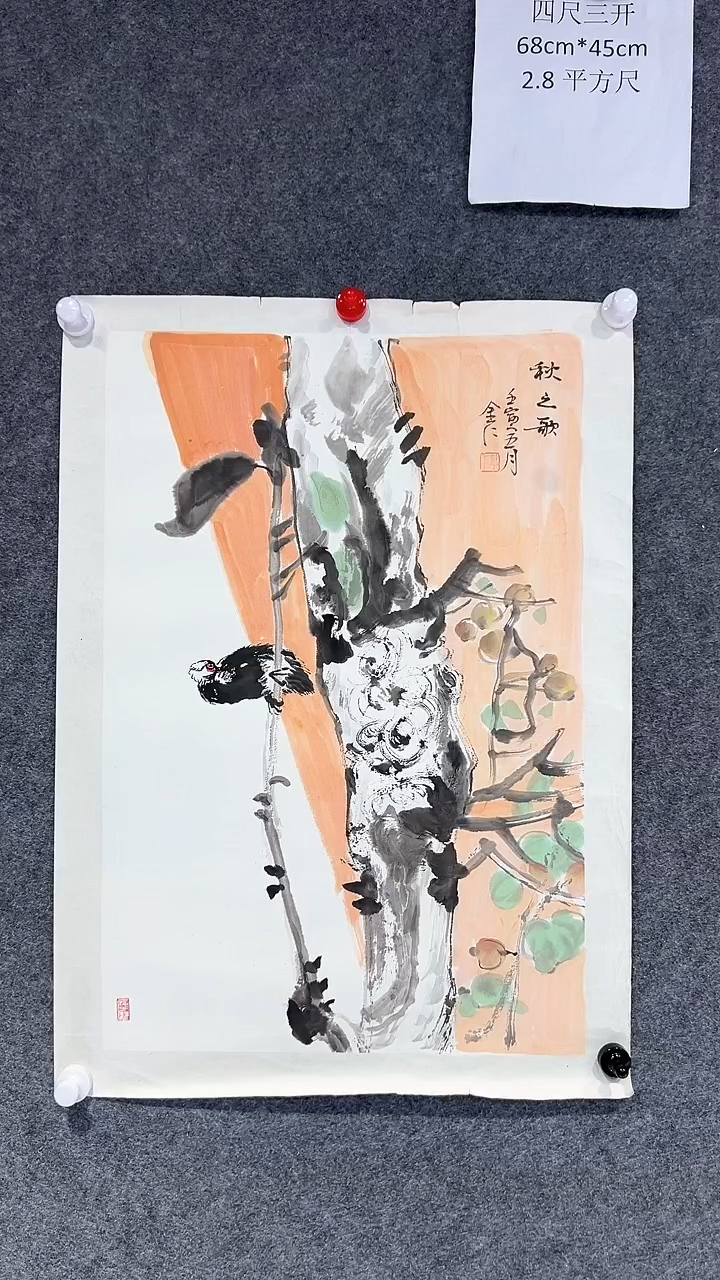 四尺三开
68cm*45cm
2.8 平方尺
秋之歌
壬寅五月
金仁